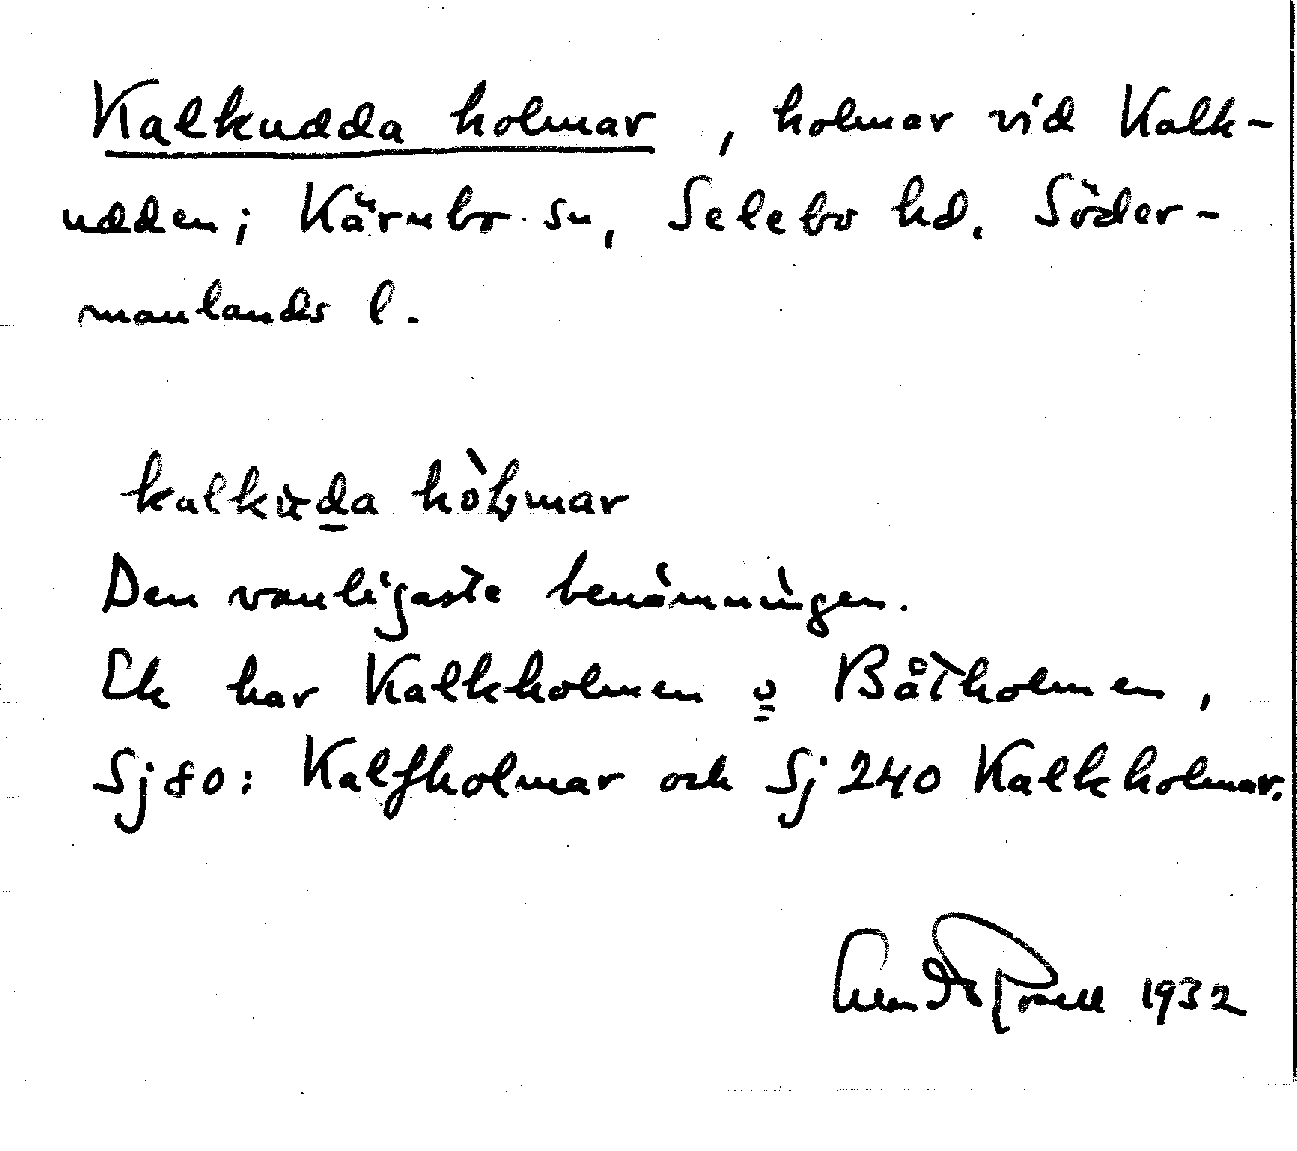 Kalkudda holmar, holmar vid Kalk-
udden; Kärnbo sn, Selebo hd. Söder-
manlands l.
kalkùda hòlmar
Den vanligaste benämningen.
Ek har Kalkholmen o Båtholmen,
Sj 80: Kalfholmar och Sj 240 Kalkholmar.
1932